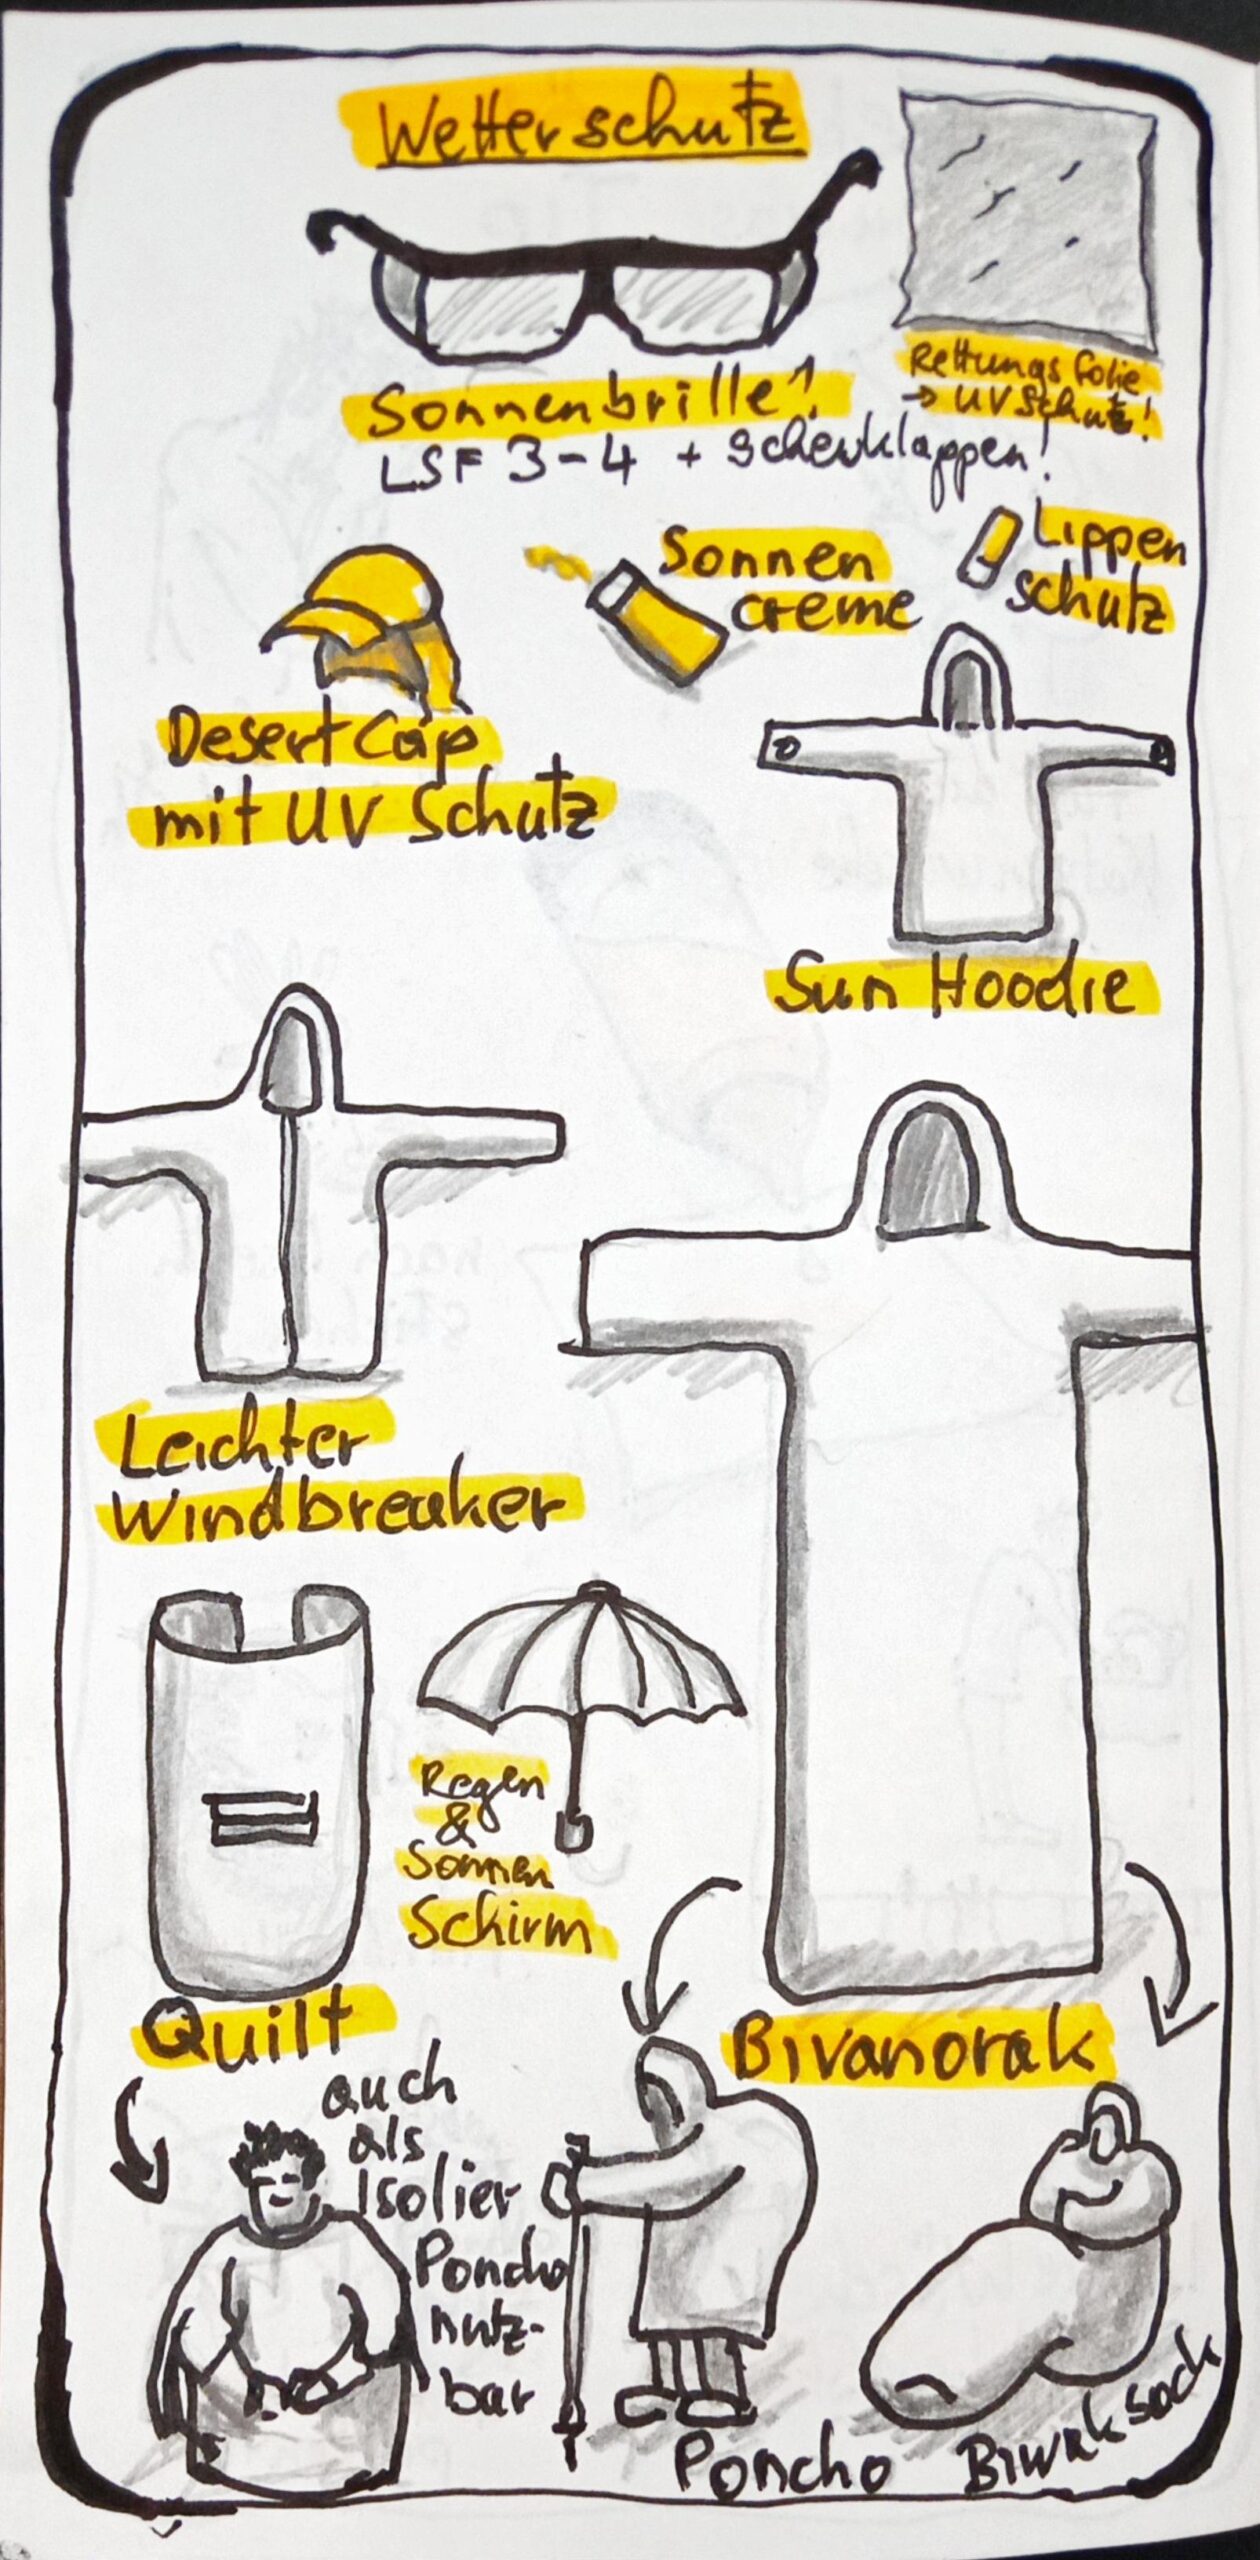 Wetterschutz
Rettungsfolie
→ UV Schutz!
Sonnenbrille!
LSF 3-4 + Scheuklappen!
Sonnen
creme
Lippen
schutz
Desert Cap
mit UV Schutz
Sun Hoodie
Leichter
Windbreaker
Regen
&
Sonnen
Schirm
Quilt
auch
als
Isolier
Poncho
nutz-
bar
Bivanorak
Poncho
Biwaksack